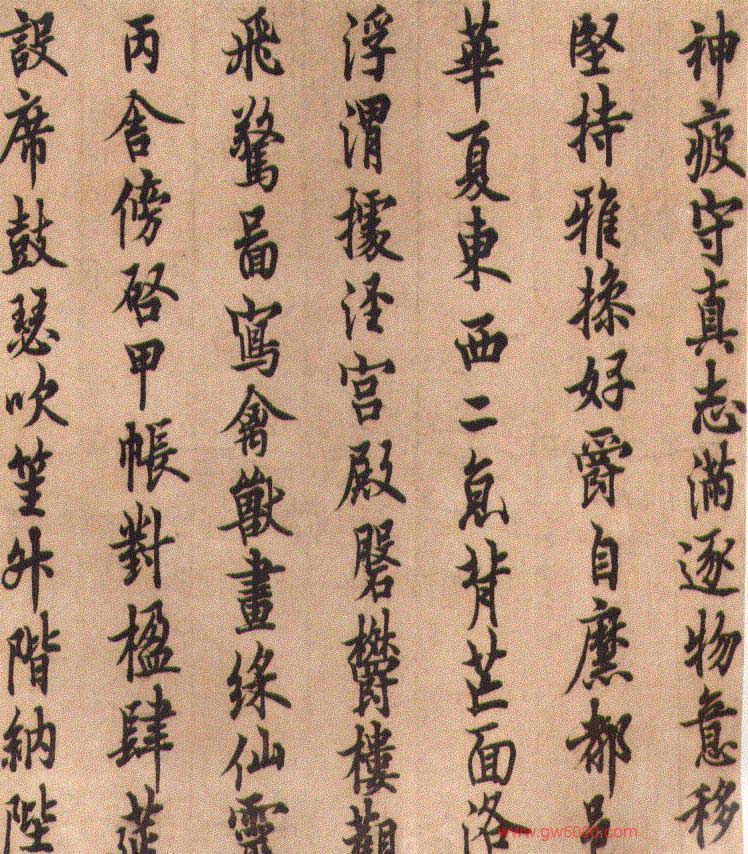 神疲守真志滿逐物意移
堅持雅操好爵自縻都邑
華夏東西二京背芒面洛
浮渭據涇宮殿磐欝樓觀
飛驚圖寫禽獸畫綵仙靈
丙舍傍啓甲帳對楹肆筵
設席鼓瑟吹笙升階納陛